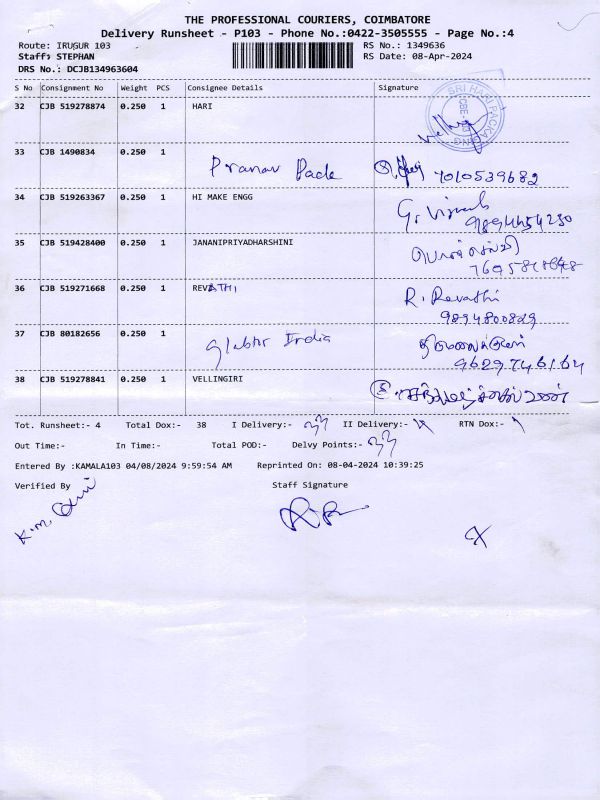 THE PROFESSIONAL COURIERS, COIMBATORE
Delivery Runsheet - P103 - Phone No.:0422-3505555 - Page No.:4
Route: IRUGUR 103 RS No.: 1349636
Staff: STEPHAN RS Date: 08-Apr-2024
DRS No.: DCJB134963604
S No Consignment No Weight PCS Consignee Details Signature
32 CJB 519278874 0.250 1 HARI
SRI HARI PACKAGING
CBE
33 CJB 1490834 0.250 1 Pranav Pade 7010539682
34 CJB 519263367 0.250 1 HI MAKE ENGG
35 CJB 519428400 0.250 1 JANANIPRIYADHARSHINI
36 CJB 519271668 0.250 1 REVATHI R. Revathi
9894800829
37 CJB 80182656 0.250 1 India
9629746164
38 CJB 519278841 0.250 1 VELLINGIRI
Tot. Runsheet:- 4 Total Dox:- 38 I Delivery:- 33 II Delivery:- RTN Dox:-
Out Time:- In Time:- Total POD:- Delvy Points:- 33
Entered By :KAMALA103 04/08/2024 9:59:54 AM Reprinted On: 08-04-2024 10:39:25
Verified By Staff Signature
K.M.